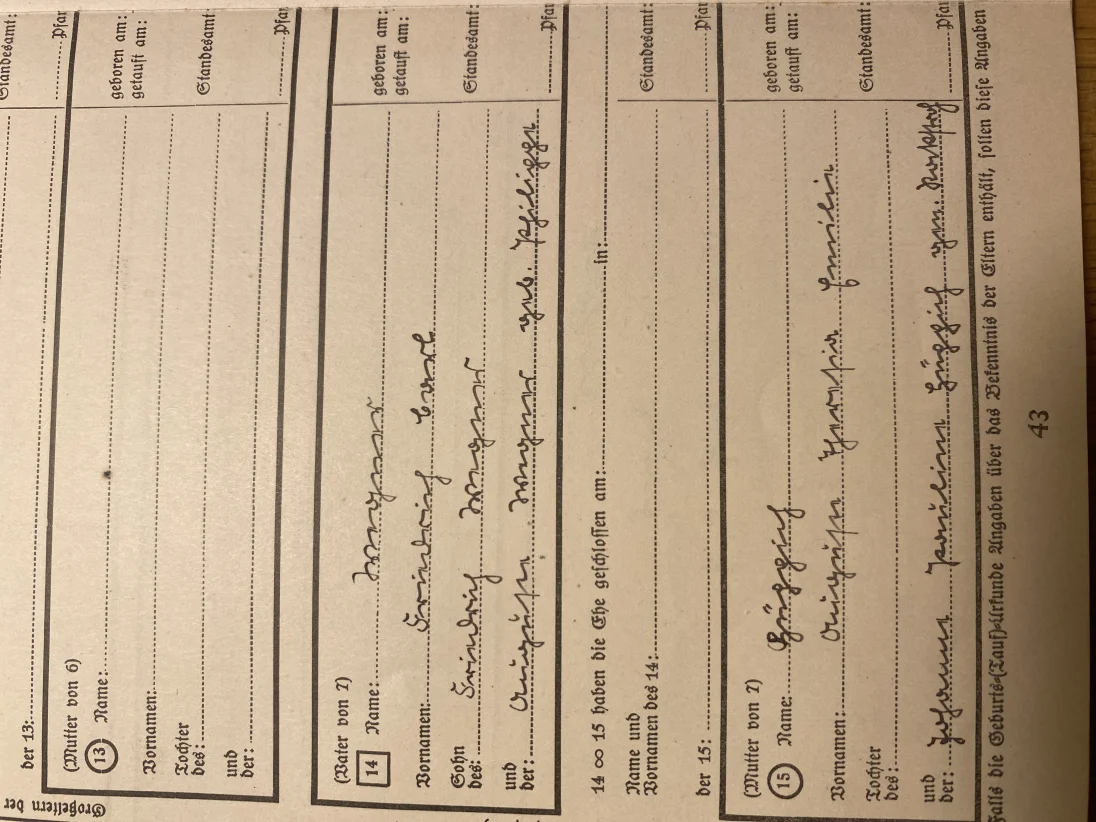 Großeltern der
der 13:
Standesamt:
Pfar
(Mutter von 6)
13 Name:
geboren am:
getauft am:
Vornamen:
Tochter
des:
Standesamt:
und
der:
Pfar
(Vater von 7)
14 Name: Wagner
geboren am:
getauft am:
Vornamen: Friedrich Carl
Sohn
des: Friedrich Wagner
Standesamt:
und
der: Auguste Wagner geb.
Pfar
14 ∞ 15 haben die Ehe geschlossen am: in:
Name und
Vornamen des 14:
Standesamt:
der 15:
Pfar
(Mutter von 7)
15 Name:
geboren am:
getauft am:
Vornamen: Auguste Emilie
Tochter
des:
Standesamt:
und
der: Johanne Pauline
Pfar
Falls die Geburts-(Tauf)-Urkunde Angaben über das Bekenntnis der Eltern enthält, sollen diese Angaben
43